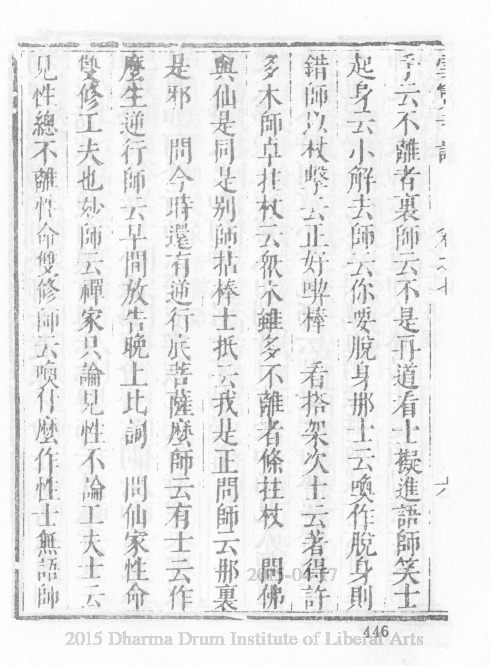 雲
子云不離者裏師云不是再道看士擬進語師笑士
起身云小解去師云你要脫身那士云喚作脫身則
錯師以杖擊云正好喫棒 看搭架次士云著得許
多木師卓拄杖云眾木雖多不離者條拄杖 問佛
與仙是同是別師拈棒士抵云我是正問師云那裏
是邪 問今時還有逆行底菩薩麼師云有士云作
麼生逆行師云早間放告晚上比詞 問仙家性命
雙修工夫也妙師云禪家只論見性不論工夫士云
見性總不離性命雙修師云喚什麼作性士無語師
六
446
2015 Dharma Drum Institute of Liberal Arts